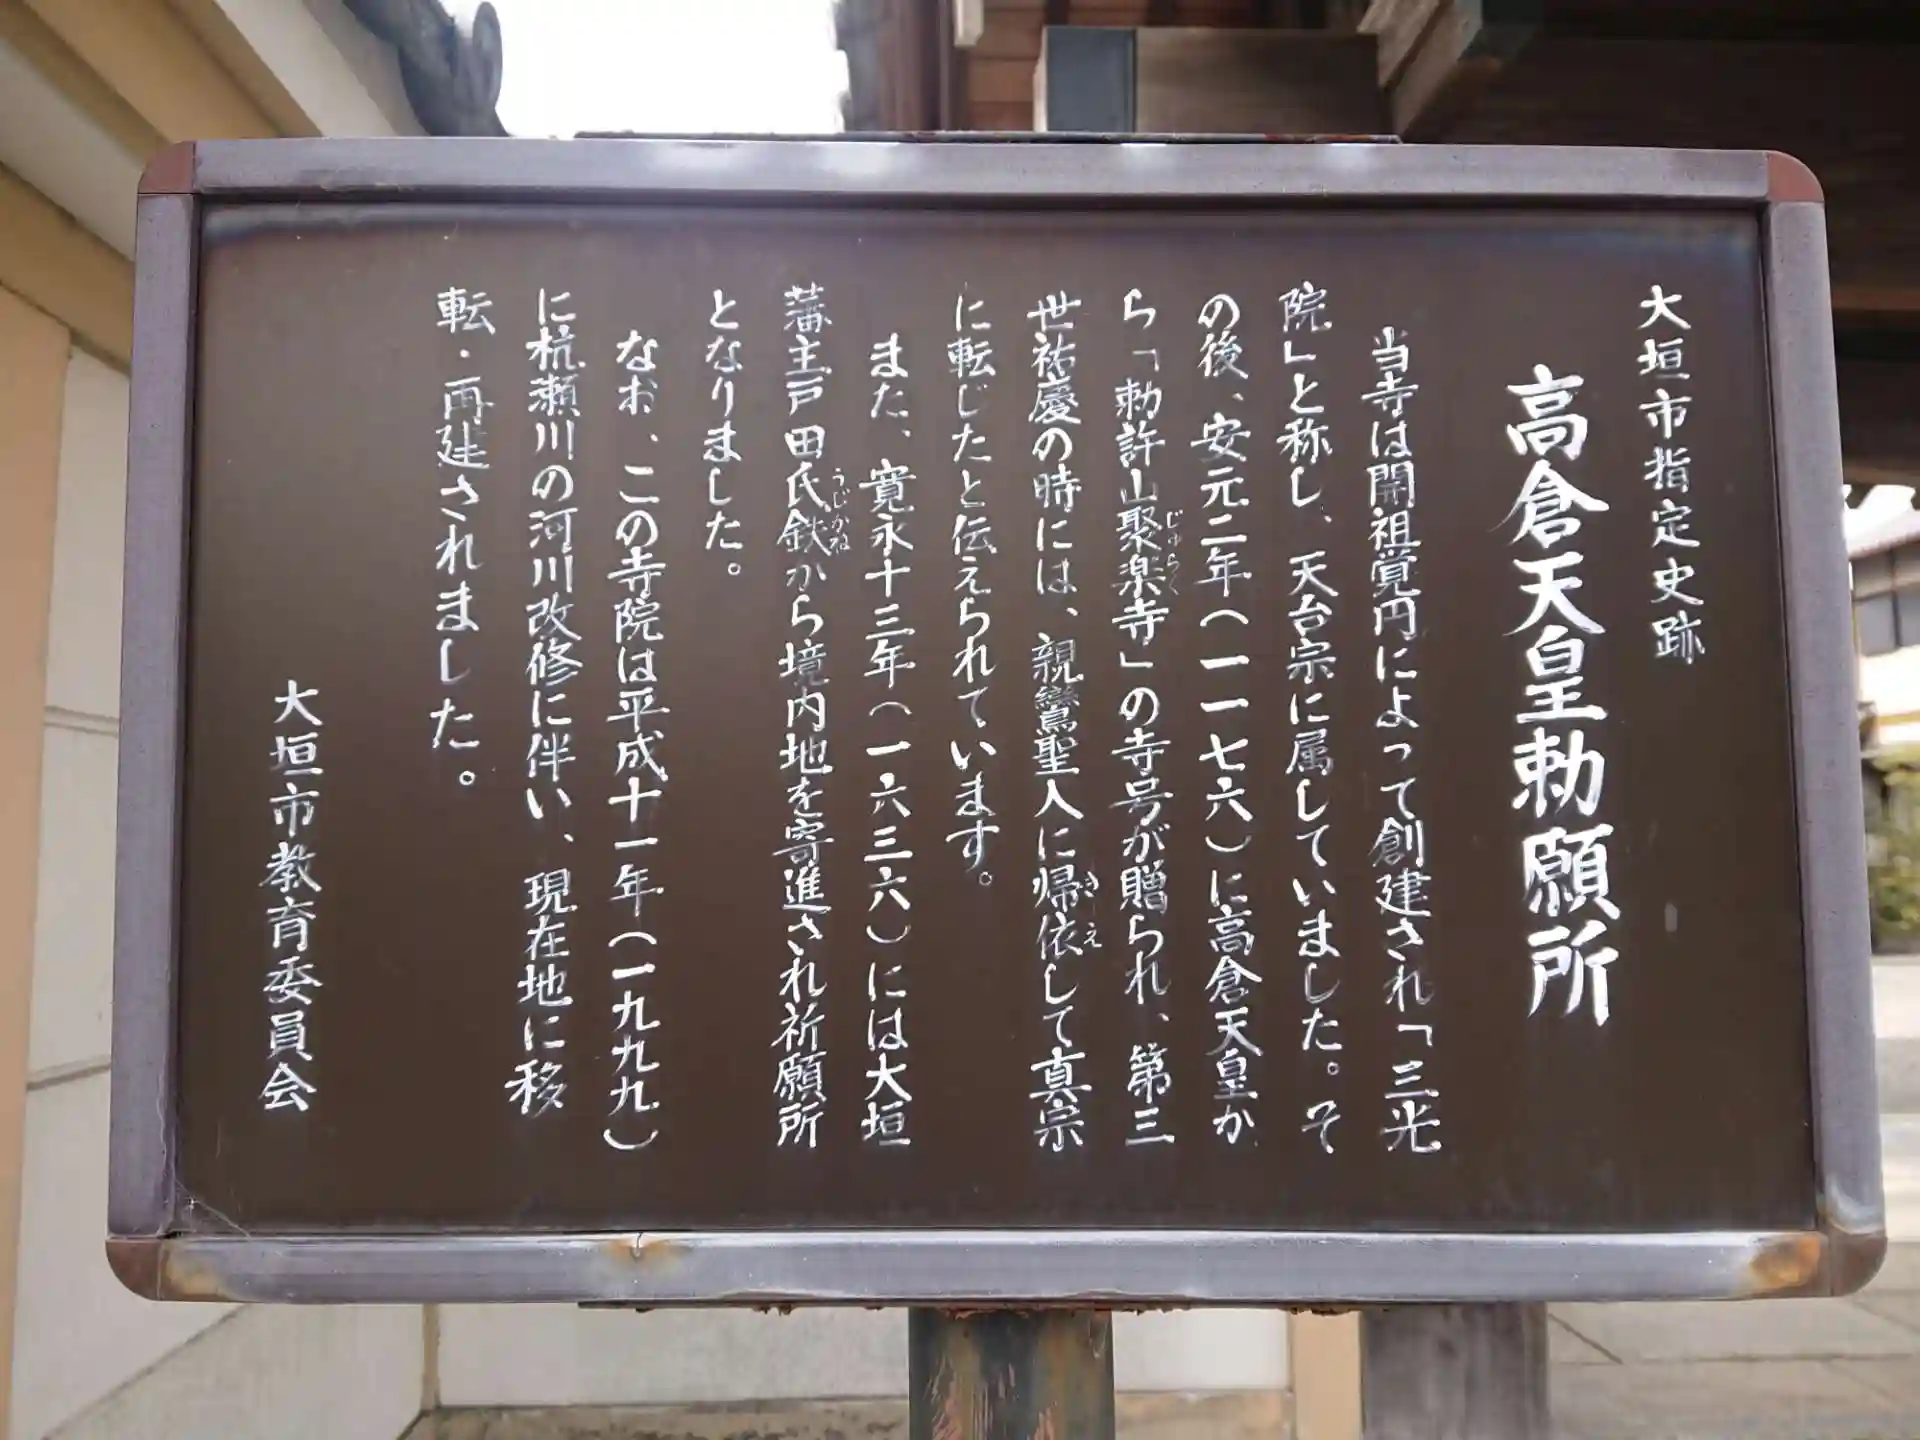 大垣市指定史跡
高倉天皇勅願所
当寺は開祖覚円によって創建され「三光
院」と称し、天台宗に属していました。そ
の後、安元二年(一一七六)に高倉天皇か
ら「勅許山聚楽寺」の寺号が贈られ、第三
じゅらく
世祐慶の時には、親鸞聖人に帰依して真宗
きえ
に転じたと伝えられています。
また、寛永十三年(一六三六)には大垣
藩主戸田氏鉄から境内地を寄進され祈願所
うじかね
となりました。
なお、この寺院は平成十一年(一九九九)
に杭瀬川の河川改修に伴い、現在地に移
転・再建されました。
大垣市教育委員会